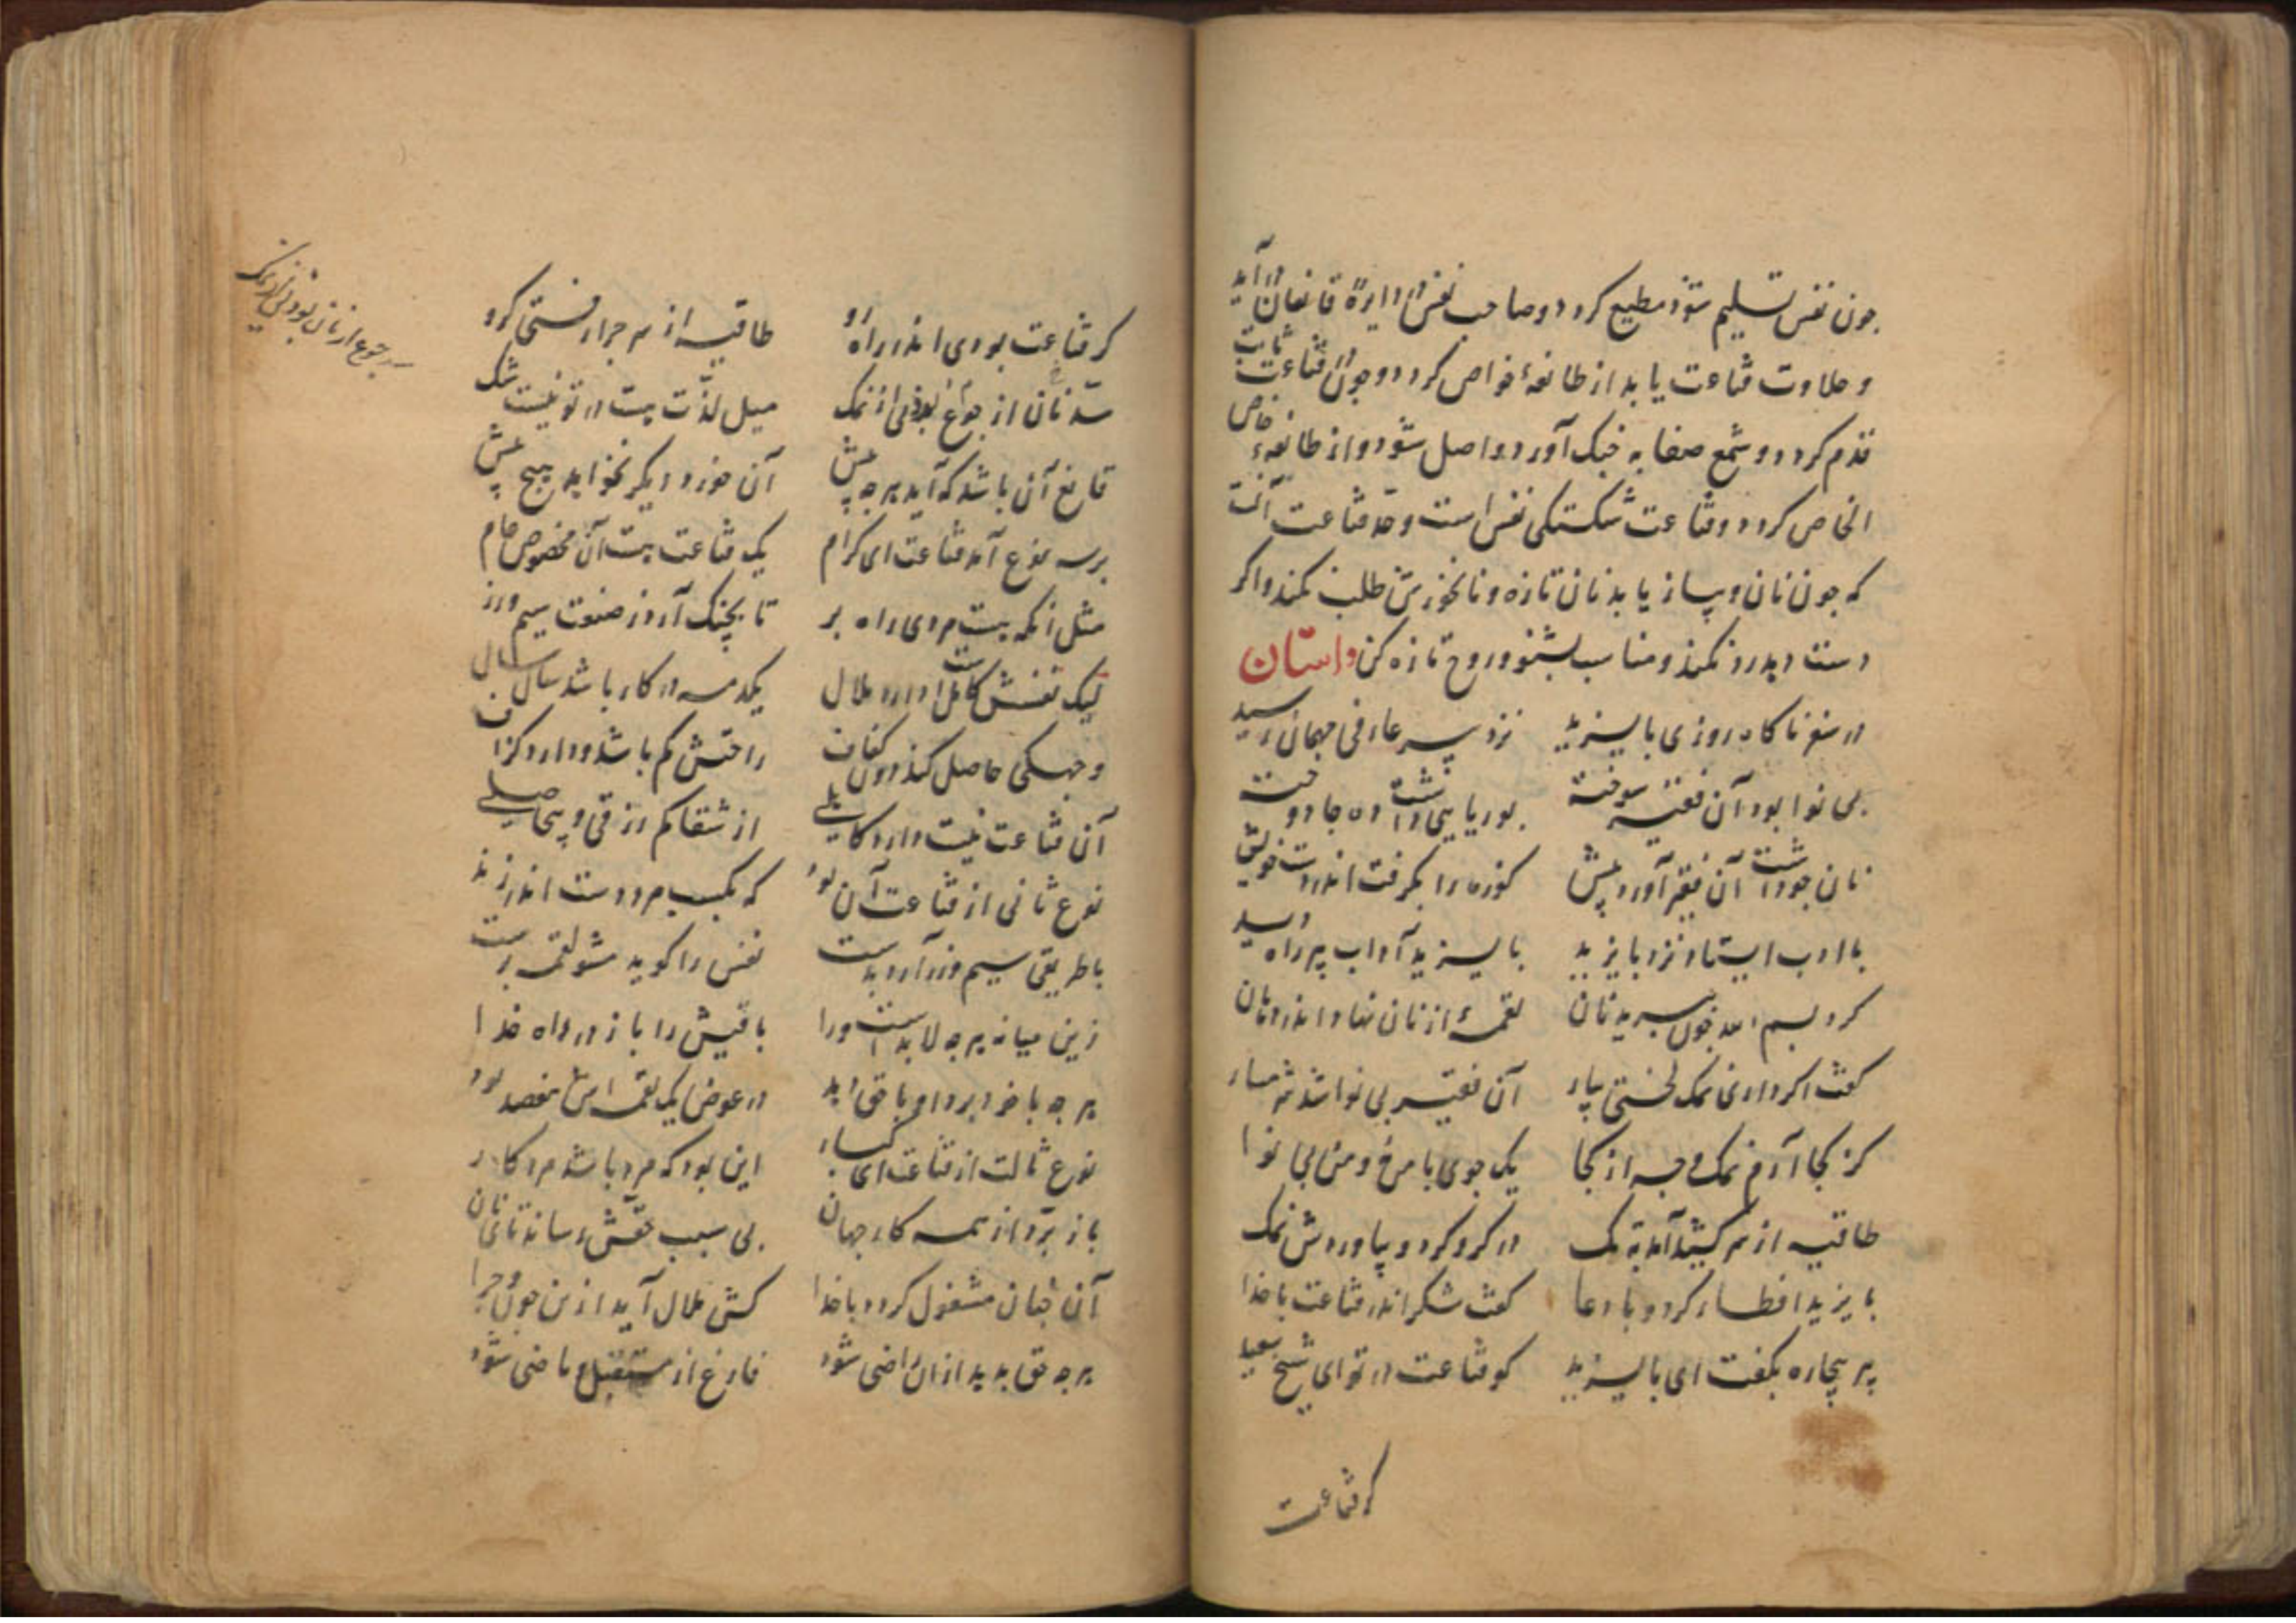 چون نفس تسلیم شود مطیع گردد و صاحب نفس در دایرهٔ قانعان در آید
و حلاوت قناعت یابد از طائفهٔ خواص گردد و چون در قناعت ثابت
قدم گردد و شمع صفا به چنگ آورد و اصل شود و از طائفهٔ خاص
الخاص گردد و قناعت شکستگی نفس است و حد قناعت آنست
که چون نان و پیاز یابد نان تازه و نانخورش طلب نکند و اگر
دست دهد رد نکند و مناسب بشنو و روح تازه کن داستان
در سفر ناگاه روزی بایزید نزد پیر عارفی مهمان رسید
بی نوا بود آن فقیه سوخته بوریایی داشت ده جا دوخته
نان جو داشت آن فقیر آورد پیش کوزه را بگرفت اندر دست خویش
با ادب ایستاد نزد بایزید بایزید آداب پیر راه دید
کرد بسم الله چون ببرید نان لقمهٔ از نان نهاد اندر دهان
گفت اگر داری نمک لختی بیار آن فقیر بی نوا شد شرمسار
کز کجا آرم نمک وجه از کجا یک جوی با من نه و من بی نوا
طاقیه از سر کشید آمد به تک در گرو کرد و بیاوردش نمک
بایزید افطار کرد و با دعا گفت شکر اندر قناعت با خدا
پیر بیچاره بگفت ای بایزید کو قناعت در تو ای شیخ سعید
گر قناعت
گر قناعت بودی اندر راه رو طاقیه از سر چرا رفتی گرو
سد نان از جوع بودی از نمک میل لذت هست در تو نیست شک
قانع آن باشد که آید هر چه پیش آن خورد دیگر نخواهد هیچ بیش
بر سه نوع آمد قناعت ای کرام یک قناعت هست آن مخصوص عام
مثل آنکه هست مردی راه بر تا بچنگ آرد ز صنعت سیم و زر
لیک نفسش کاهل است و دارد ملال یکدمه در کار باشد سال سال
وجهکی حاصل کند دون کفاف راحتش کم باشد و دارد گزاف
آن قناعت نیست دارد کاهلی از شقا کم رزقی و بی حاصلی
نوع ثانی از قناعت آن بود که بکسب مرد دست اندر زند
با طریقی سیم و زر آرد بدست نفس را گوید مشو لقمه پرست
زین میانه هر چه لابد است ورا باقیش را باز در راه خدا
هر چه با خود برد او باقی دهد در عوض یک لقمه اش هفصد بود
نوع ثالث از قناعت ای کبار این بود که مرد باشد مرد کار
باز برد از همه کار جهان بی سبب حقش رساند تای نان
آن چنان مشغول گردد با خدا کش ملال آید ازین چون و چرا
هر چه حق بدهد از آن راضی شود فارغ از مستقبل و ماضی شود